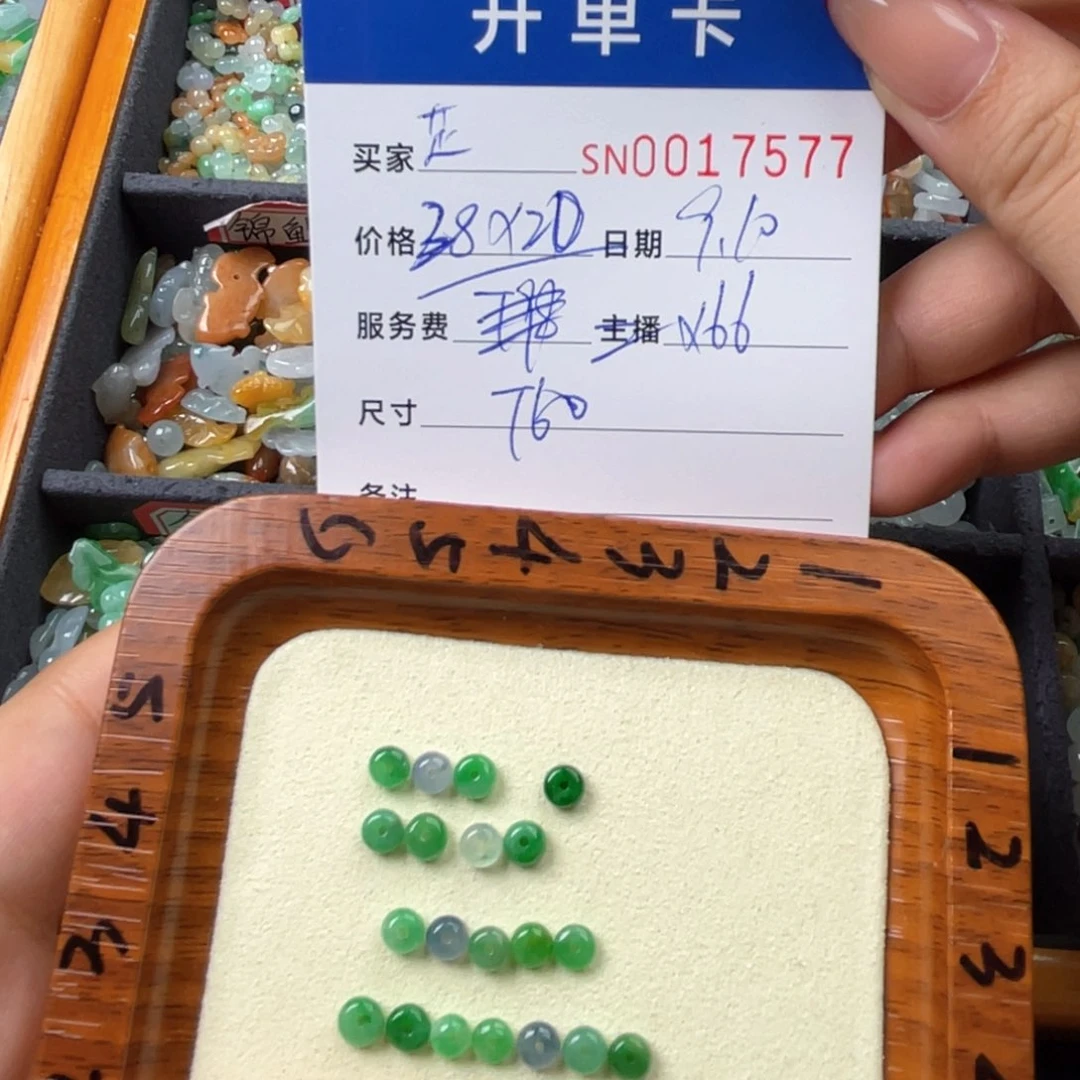 开单卡
买家 芷 SN0017577
价格 38x20 日期 9.10
服务费 主播 x66
尺寸 760
备注
锦鱼
9 5 4 3 2 1
5
4
1
2
3